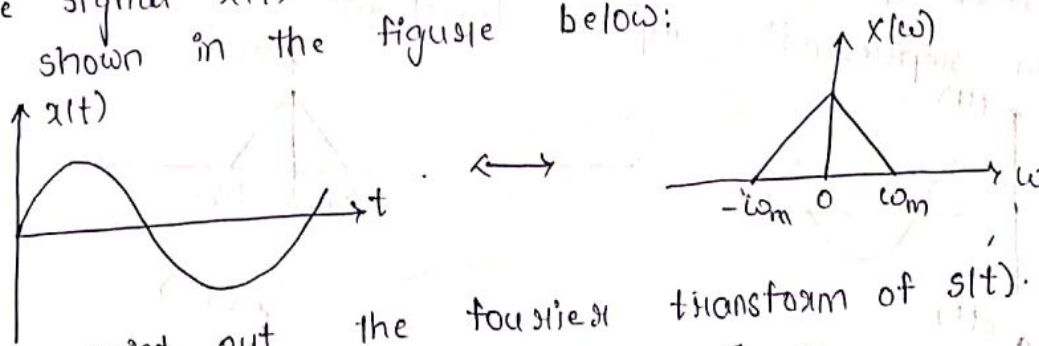 e signal x(t)
shown in the figure below:
x(t)
X(ω)
t
-ωm 0 ωm
out the fourier transform of s(t).